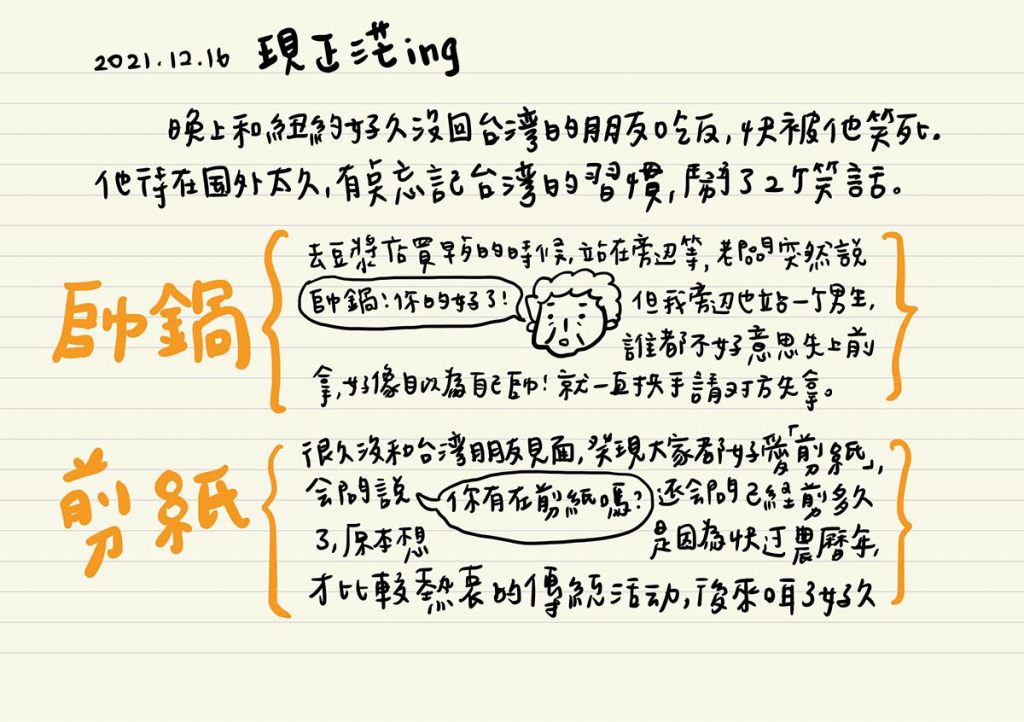 2021.12.16 現正茫ing
晚上和紐約好久沒回台湾的朋友吃反,快被他笑死.
他待在国外太久,有点忘記台湾的習慣,鬧了2个笑話。
帥鍋
去豆漿店買早的時候,站在旁辺等,老問突然説
帥鍋!你的好了!
但我旁辺也站一个男生,
誰都不好意思先上前
拿,好像自以為自己帥!就一直揮手請对方先拿。
剪紙
很久没和台湾朋友見面,発現大家都好愛「剪紙」,
会問説
你有在剪紙嗎?
还会問已経剪多久
了,原本想
是因為快过農曆年,
才比較熱衷的傳統活动,後來咡了好久